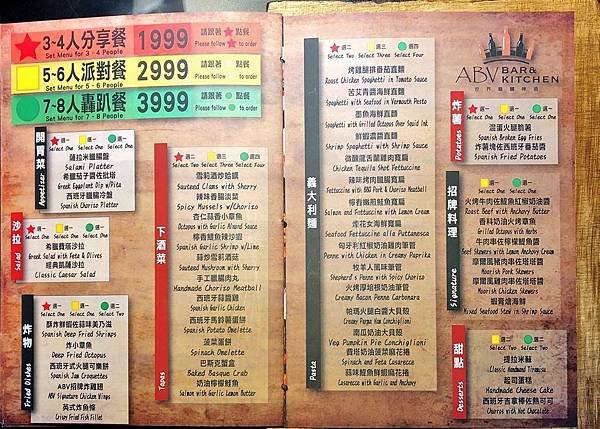 3~4人分享餐 1999 請跟著 點餐
Set Menu for 3 - 4 People Please follow to order
5-6人派對餐 2999 請跟著 點餐
Set Menu for 5 - 6 People Please follow to order
7-8人轟趴餐 3999 請跟著 點餐
Set Menu for 7 - 8 People Please follow to order
開胃菜 Appetizer
選一 選一 選一
Select One Select One Select One
薩拉米臘腸盤
Salami Platter
希臘茄子醬佐批塔
Greek Eggplant Dip w/Pita
西班牙臘腸冷盤
Spanish Chorizo Platter
沙拉 Salad
選一 選一 選一
Select One Select One Select One
希臘費塔沙拉
Greek Salad with Feta & Olives
經典凱薩沙拉
Classic Caesar Salad
炸物 Fried Dishes
選一 選一 選二
Select One Select One Select Two
酥炸鮮蝦佐蒜味美乃滋
Spanish Deep Fried Shrimps
炸小章魚
Deep Fried Octopus
西班牙式火腿可樂餅
Spanish Jam Croquettes
ABV招牌炸雞翅
ABV Signature Chicken Wings
英式炸魚條
Crispy Fried Fish Fillet
下酒菜 Tapas
選二 選三 選四
Select Two Select Three Select Four
雪莉酒炒蛤蠣
Sauteed Clams with Sherry
辣味香腸淡菜
Spicy Mussels w/Chorizo
杏仁蒜香小章魚
Octopus with Garlic Almond Sauce
檸香鱷魚辣炒蝦
Spanish Garlic Shrimp w/Lime
蒜炒雪莉洒菇
Sauteed Mushroom with Sherry
手工臘腸肉丸
Handmade Chorizo Meatball
西班牙蒜雞
Spanish Garlic Chicken
西班牙馬鈴薯蛋餅
Spanish Potato Omelette
菠菜蛋餅
Spinach Omelette
巴斯克蟹盒
Baked Basque Crab
奶油檸檬鮭魚
Salmon with Garlic Lemon Butter
義大利麵 Pasta
選二 選三 選四
Select Two Select Three Select Four
烤雞腿排番茄直麵
Roast Chicken Spaghetti in Tomato Sauce
苦艾青醬海鮮直麵
Spaghetti with Seafood in Vermouth Pesto
墨魚海鮮直麵
Spaghetti with Grilled Octopus Over Squid Ink
鮮蝦濃醬直麵
Shrimp Spaghetti with Seafood
微醺龍舌蘭雞肉寬扁
Chicken Tequila Shot Fettuccine
辣味烤肉臘腸寬扁
Fettuccine with BBQ Pork & Chorizo Meatball
檸香嫩煎鮭魚寬扁
Salmon and Fettuccine with Lemon Cream
煙花女海鮮寬扁
Seafood Fettuccine alla Puttanesca
匈牙利紅椒奶油雞肉筆管
Penne with Chicken in Creamy Paprika
牧羊人風味筆管
Shepherd's Penne with Spicy Chorizo
火烤厚培根奶油筆管
Creamy Bacon Penne Carbonara
帕瑪火腿白醬大貝殼
Creamy Parma Ham Conchiglioni
南瓜奶油大貝殼
Veg Pumpkin Pie Conchiglioni
費塔奶油菠菜麻花捲
Spinach and Feta Casarecce
蒜味鯷魚鮮蝦麻花捲
Casarecce with Garlic and Anchovy
ABV BAR & KITCHEN
炸薯 Potatoes
選一 選一 選一
Select One Select One Select One
混蛋火腿脆薯
Spanish Broken Egg Fries
炸薯塊佐西班牙番茄醬
Spanish Fried Potatoes
招牌料理 Signature
選一 選一 選一
Select One Select One Select One
火烤牛肉佐鯷魚紅椒奶油醬
Roast Beef with Anchovy Butter
香料奶油火烤章魚
Grilled Octopus with Herbs
牛肉串佐檸檬鯷魚醬
Beef Skewers with Lemon Anchovy Cream
摩爾風豬肉串佐塔塔醬
Moorish Pork Skewers
摩爾風雞肉串佐塔塔醬
Moorish Chicken Skewers
蝦霸燴海鮮
Mixed Seafood Stew in Shrimp Sauce
甜點 Desserts
選二 選二
Select Two Select Two
提拉米蘇
Classic Handmad Tiramisu
起司蛋糕
Handmade Cheese Cake
西班牙吉拿棒佐熱可可
Churros with Hot Chocolate